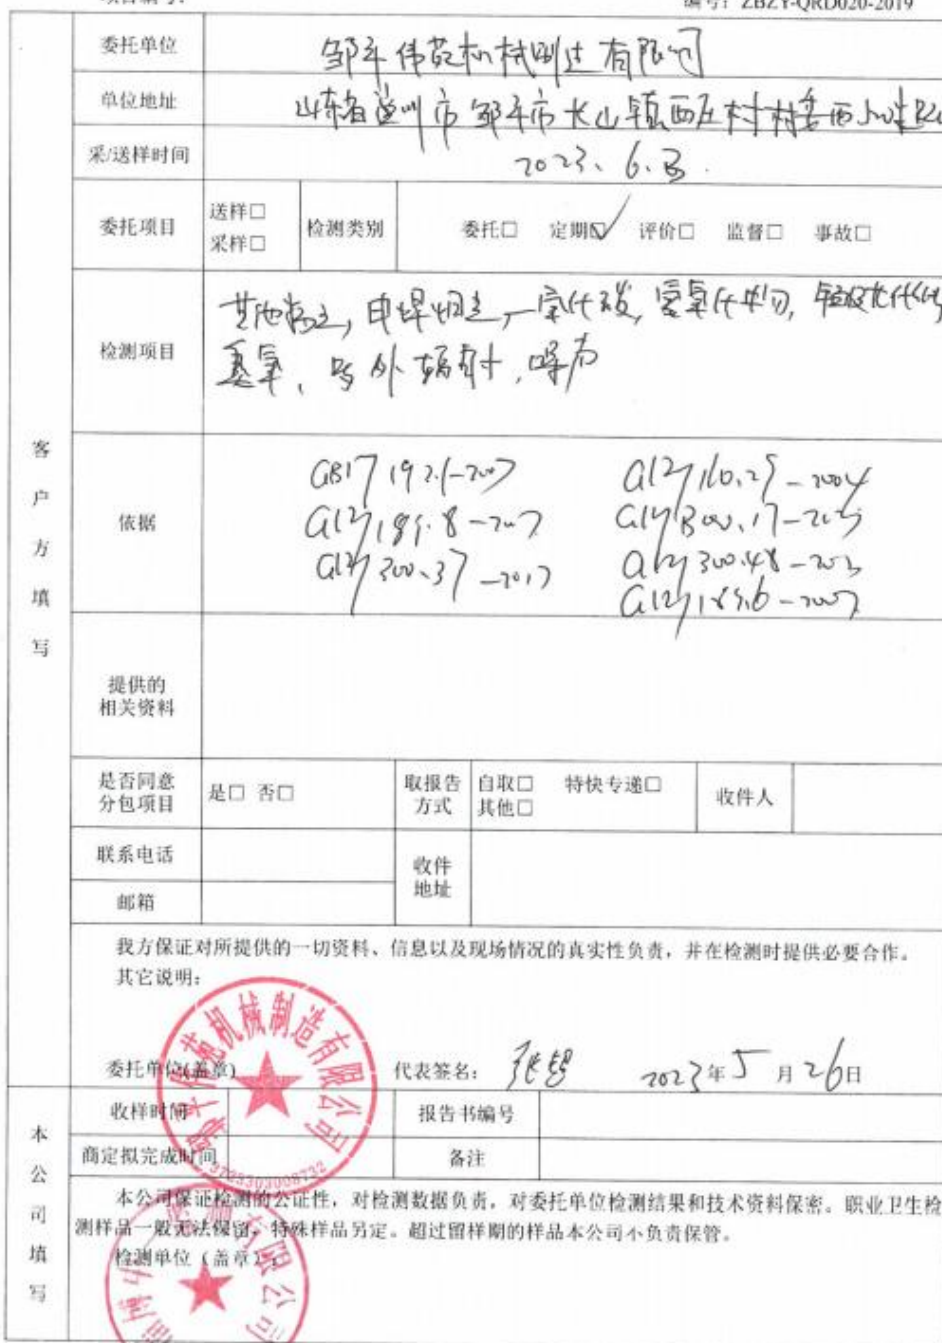 编号：ZBZY-QRD020-2019
委托单位 邹平伟苑机械制造有限公司
单位地址 山东省滨州市邹平市长山镇西庄村村委西
采/送样时间 2023、6、3.
委托项目 送样□ 采样□ 检测类别 委托□ 定期☑ 评价□ 监督□ 事故□
检测项目
其他粉尘，电焊烟尘，一氧化碳，氮氧化物，
臭氧、紫外辐射，噪声
客户方填写
依据
GBZ/T 192.1-2007 GBZ/T 160.29-2004
GBZ/T 189.8-2007
GBZ/T 300.37-2017 GBZ/T 300.48-2017
GBZ/T 189.6-2007
提供的
相关资料
是否同意
分包项目 是□ 否□
取报告
方式 自取□ 特快专递□
其他□
收件人
联系电话
收件
地址
邮箱
我方保证对所提供的一切资料、信息以及现场情况的真实性负责，并在检测时提供必要合作。
其它说明：
委托单位(盖章) 代表签名： 2023年5月26日
邹平伟苑机械制造有限公司
3723303008732
本公司填写
收样时间 报告书编号
商定拟完成时间 备注
本公司保证检测的公证性，对检测数据负责，对委托单位检测结果和技术资料保密。职业卫生检
测样品一般无法保留，特殊样品另定。超过留样期的样品本公司不负责保管。
检测单位（盖章）：